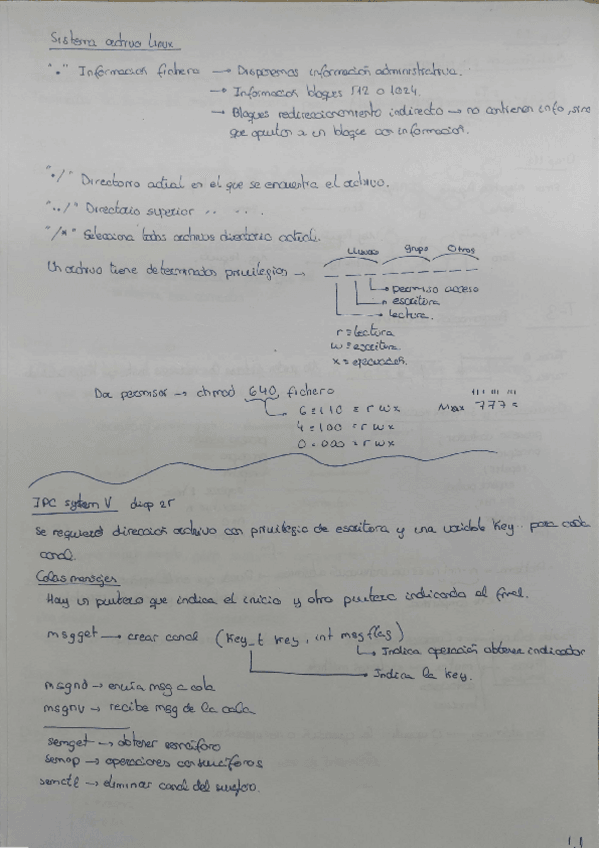 Sistema archivo Linux
"." Informacion fichero → Disponemos información administrativa.
→ Informacion bloques 512 o 1024.
→ Bloques redireccionamiento indirecto → no contienen info, sino
que apuntan a un bloque con informacion.
"./" Directorio actual en el que se encuentra el archivo.
"../" Directorio superior .. . . .
"/*" Selecciona todos archivos directorio actual.
Usuario grupo Otros
Un archivo tiene determinados privilegios →
permiso acceso
escritura
lectura.
r = lectura
w = escritura
x = ejecución.
Dar permisos → chmod 640, fichero
111 111 111
6 = 110 = r w x
Max 777 =
4 = 100 = r w x
0 = 000 = r w x
IPC system V diap 25
Se requiere dirección archivo con privilegio de escritura y una variable Key para cada
canal.
Colas mensajes
Hay un puntero que indica el inicio y otro puntero indicando el final.
msgget → crear canal (Key_t key, int msgflag)
Indica operación obtener indicador
Indica la key.
msgnd → envia msg a cola
msgrv → recibe msg de la cola
semget → obtener semáforo
semop → operaciones con semáforos
semctl → eliminar canal del